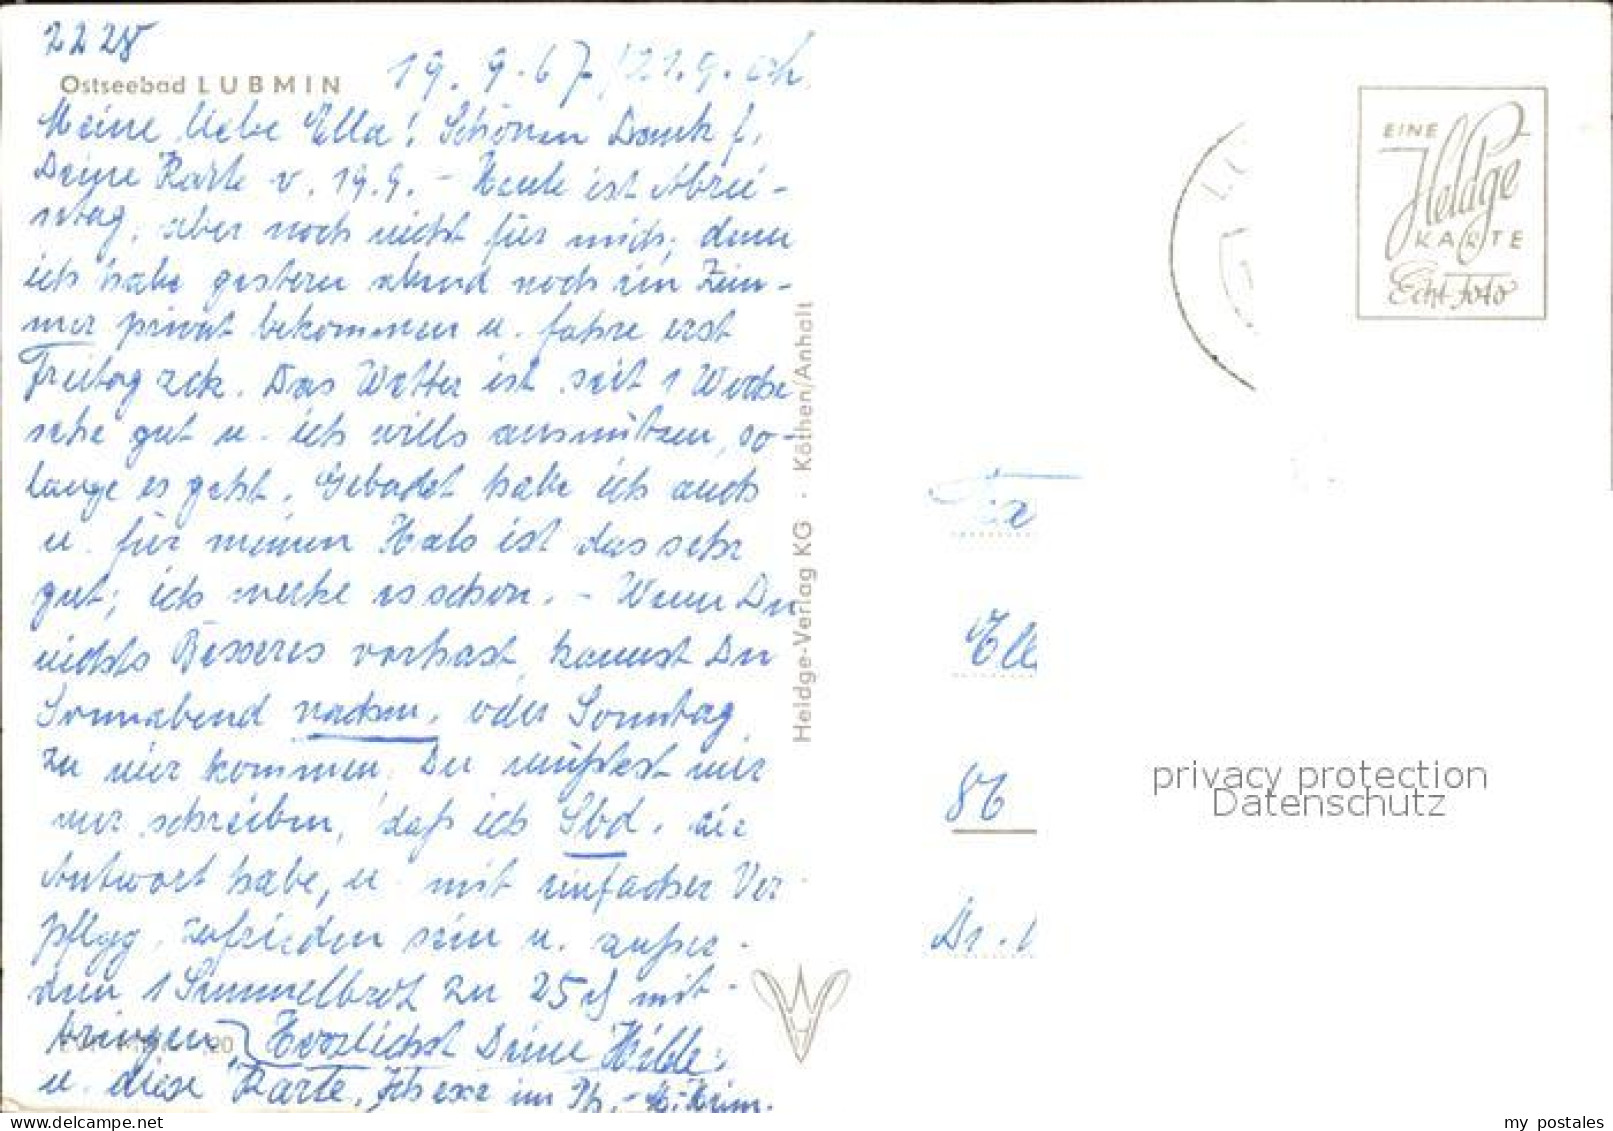 2228
Ostseebad LUBMIN
19.9.67/21.9.
Meine liebe Ella! Schönen Dank f.
Deine Karte v. 19.9. - Heute ist Abrei-
setag, aber noch nicht für mich, denn
ich habe gestern abend noch ein Zim-
mer privat bekommen u. fahre erst
Freitag zck. Das Wetter ist seit 1 Woche
sehr gut u. ich wills ausnützen, so-
lange es geht. Gebadet habe ich auch
u. für meinen Hals ist das sehr
gut; ich merke es schon. - Wenn Du
nichts Besseres vorhast, kannst Du
Sonnabend nachm. oder Sonntag
zu mir kommen. Du müßtest mir
nur schreiben, daß ich Sbd. die
Antwort habe, u. mit einfacher Ver-
pflgg. zufrieden sein u. außer-
dem 1 Semmelbrot zu 25 mit-
bringen Herzlichst Deine Hilde
u. diese Karte. Ich esse im
EINE
Heldge
KARTE
Echt Foto
Heldge-Verlag KG · Köthen/Anhalt
Ell
86
Dr.
privacy protection
Datenschutz
my postales